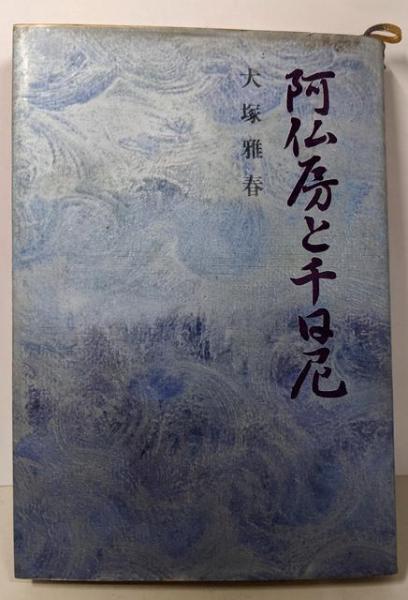 阿仏房と千日尼
大塚雅春